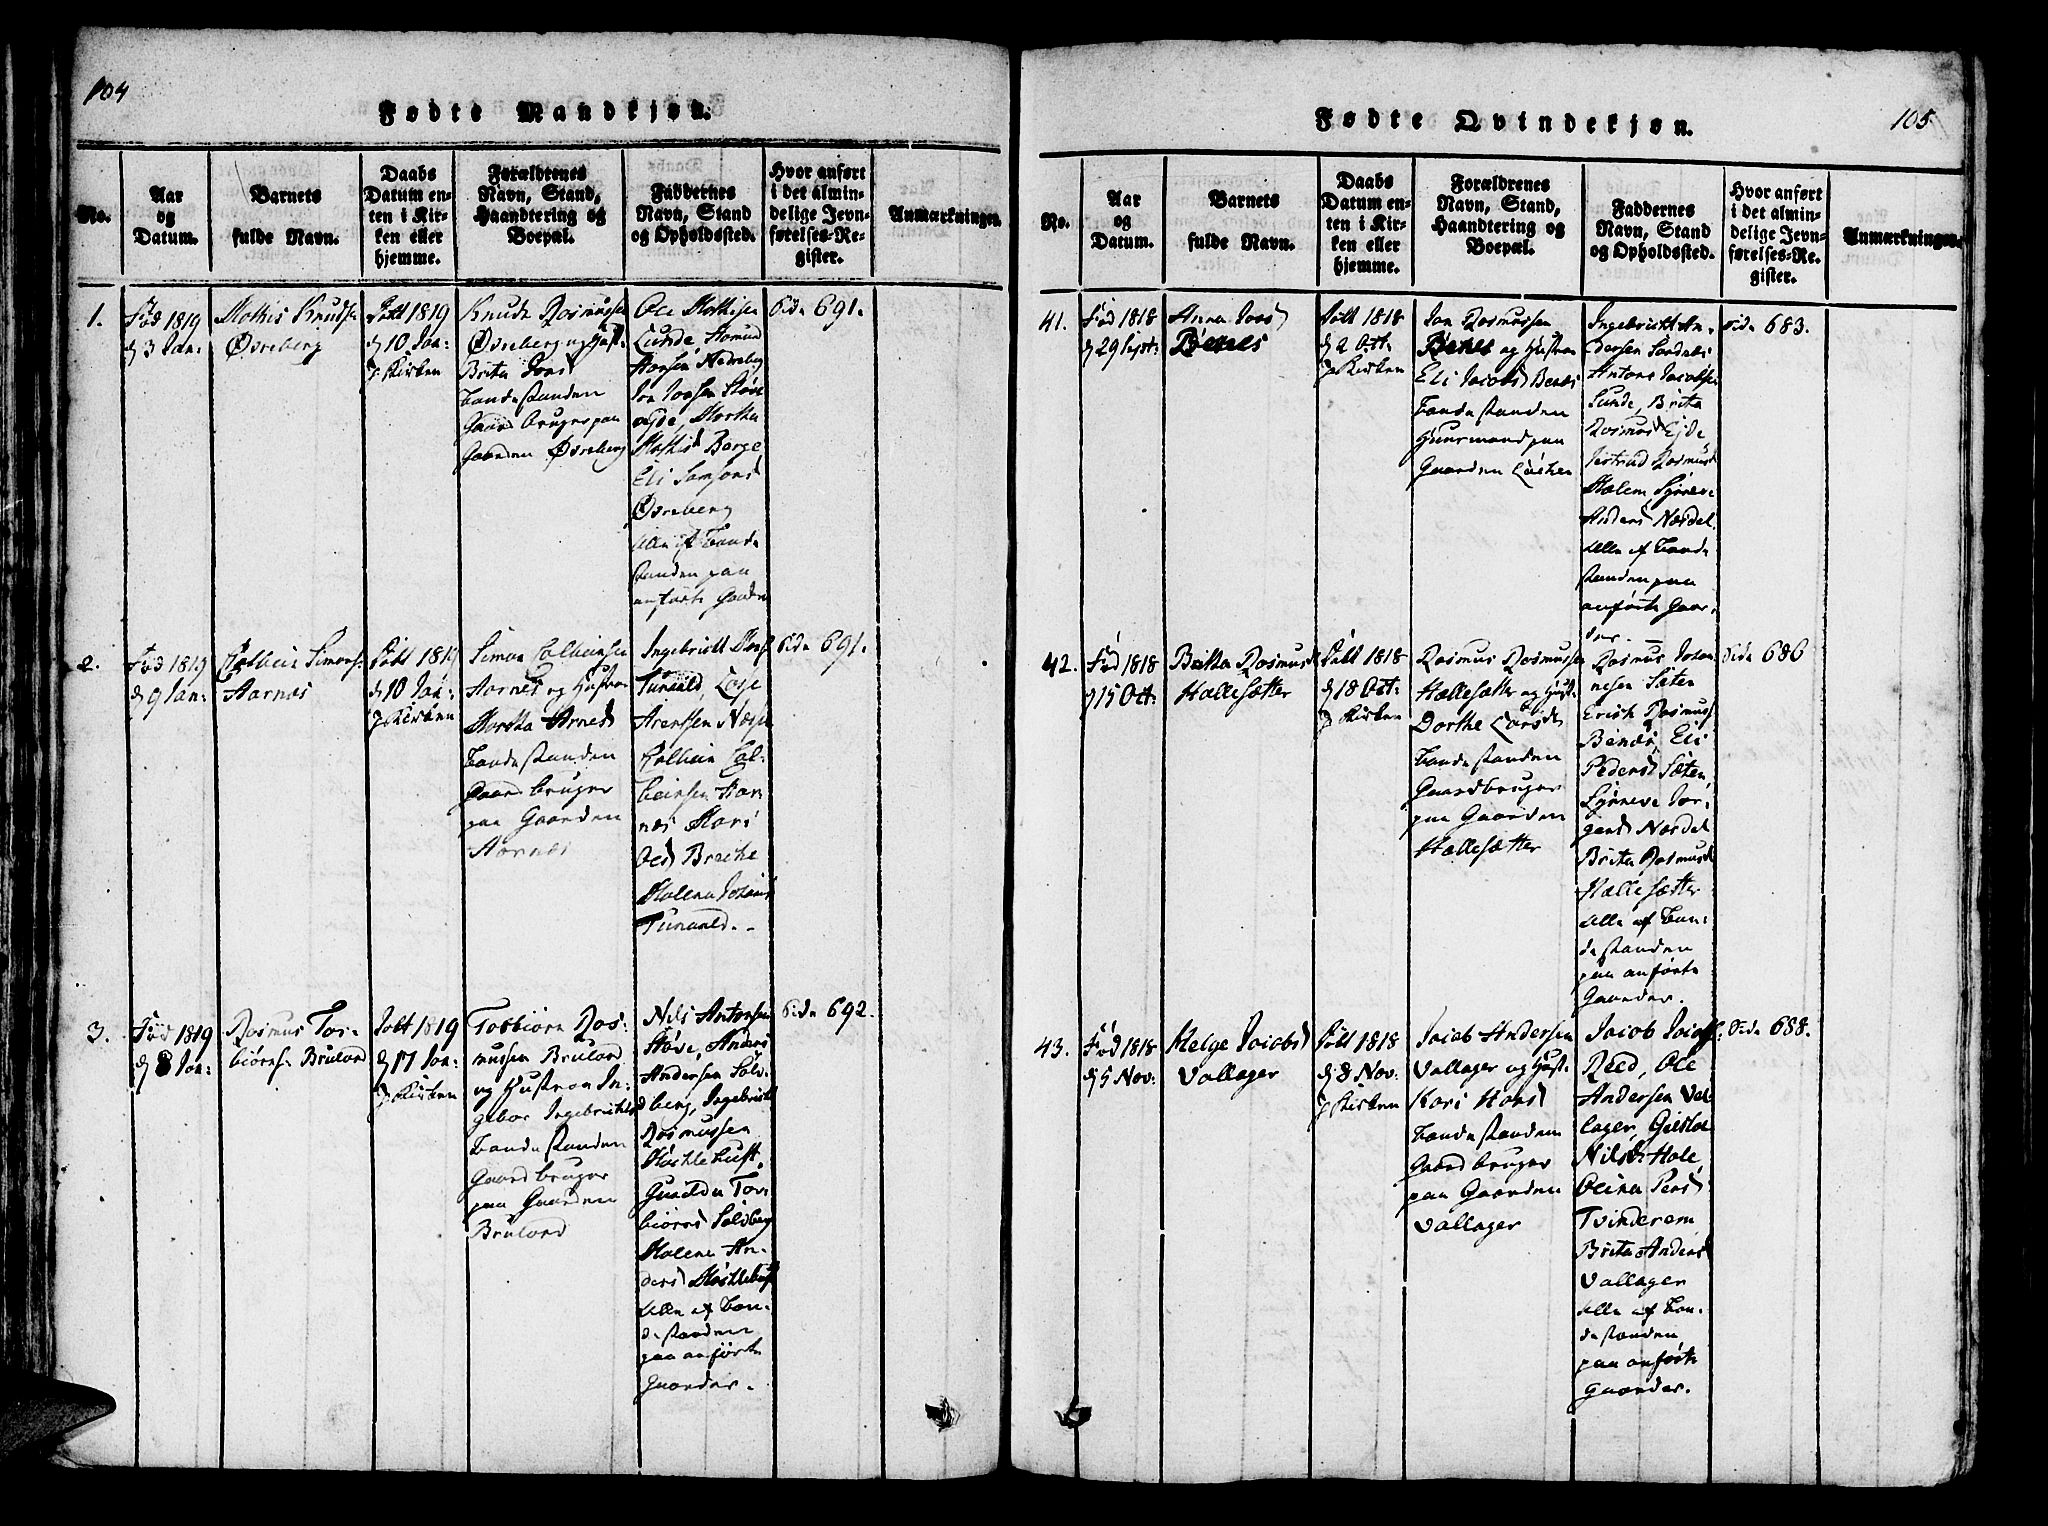 104
Fødte Mandkjøn.
No.
Aar
og
Datum.
Barnets
fulde Navn.
Daabs
Datum en-
ten i Kir-
ken eller
hjemme.
Forældrenes
Navn, Stand,
Haandtering og
Boepæl.
Faddernes
Navn, Stand
og Opholdssted.
Hvor anført
i det almin-
delige Jevn-
førelses-Re-
gister.
Anmærkninger.
1.
Fød 1819
d 3 Jan:
Mathis Knudsen
Øvreberg
Døbt 1819
d 10 Jan:
J Kirken
Knudt Rasmussen
Øvreberg og Hust:
Brita Jonsd
bondestanden
Gaardbruger paa
Gaarden Øvreberg
Ole Mathisen
Lunde
Hansen
Jon Joesen
Martha
Mathisd Berge
Eli Samsonsd
Øvreberg
Alle af bonde
standen paa
anførte Gaarde
Side 691.
2.
Fød 1819
d 9 Jan:
Colbein Simons:
Aarnæs
Døbt 1819
d 10 Jan:
J Kirken
Simon Colbeinsen
Aarnes og Hustroe
Martha Arnesd
bondestanden
Gaardbruger
paa Gaarden
Aarnæs
Ingebrictt
Tunvald,
Arentsen
Colbein Col-
beinsen Aar-
næs Kari
Olesd Brecke
Malena Johansd
Tunvald. -
Side 691.
3.
Fød 1819
d 8 Jan:
Rasmus Tor-
biørns: Brulord
Døbt 1819
d 17 Jan:
J Kirken
Torbiørn Ras-
mussen Brulord
og Hustroe In-
gebor Ingebricktsd
bondestanden
Gaardbruger
paa Gaarden
Brulord
Nils Antonsen
Støve, Anders
Andersen Solb
berg, Ingebrictt
Rasmussen
Gunilda Tor-
biørnsd Solsberg
Malene An-
dersd
Alle af bon-
destanden
paa anførte
Gaarder.
Side 692.
105
Fødte Qvindekjøn.
No.
Aar
og
Datum.
Barnets
fulde Navn.
Daabs
Datum en-
ten i Kir-
ken eller
hjemme.
Forældrenes
Navn, Stand,
Haandtering og
Boepæl.
Faddernes
Navn, Stand
og Opholdssted.
Hvor anført
i det almin-
delige Jevn-
førelses-Re-
gister.
Anmærkninger.
41.
Fød 1818
d 29 Sept:
Anna Jonsd
Benes
Døbt 1818
d 2 Oct:
J Kirken
Jon Rasmussen
Benes og Hustroe
Eli Jacobsd Benes
bondestanden
Huusmand paa
Gaarden
Ingebrictt An-
dersen Sandal
Antone Jacobsen
Sunde, Brita
Rasmusd Ejde
Jertrud Rasmusd
Halem, Synneve
Andersd Nærdal
Alle af bonde
standen paa
anførte Gaar-
der. -
Side 683.
42.
Fød 1818
d 15 Oct:
Britta Rasmusd
Hallesætter
Døbt 1818
d 18 Oct:
J Kirken
Rasmus Rasmussen
Hallesætter og Hust:
Dorthe Larsd
bondestanden
Gaardbruger
paa Gaarden
Hallesætter
Rasmus Johan-
nesen Sæten
Erich Rasmuss:
Benæs, Eli
Pedersd Sæten,
Synneve Jør-
gensd Nærdal
Brita Rasmusd
Hallesætter
Alle af bon-
destanden
paa anførte
Gaarder.
Side 686
43.
Fød 1818
d 5 Nov:
Helge Jacobsd
Vallager
Døbt 1818
d 8 Nov:
J Kirken
Jacob Andersen
Vallager og Hust:
Kari Hansd
bondestanden
Gaardbruger
paa Gaarden
Vallager
Jacob Jacobs:
Reed, Ole
Andersen Val-
lager, Giertru
Nilsd Hole
Oline Persd
Tvinderem
Brita Andersd
Vallager
Alle af bon-
destanden
paa anførte
Gaarder.
Side 688.